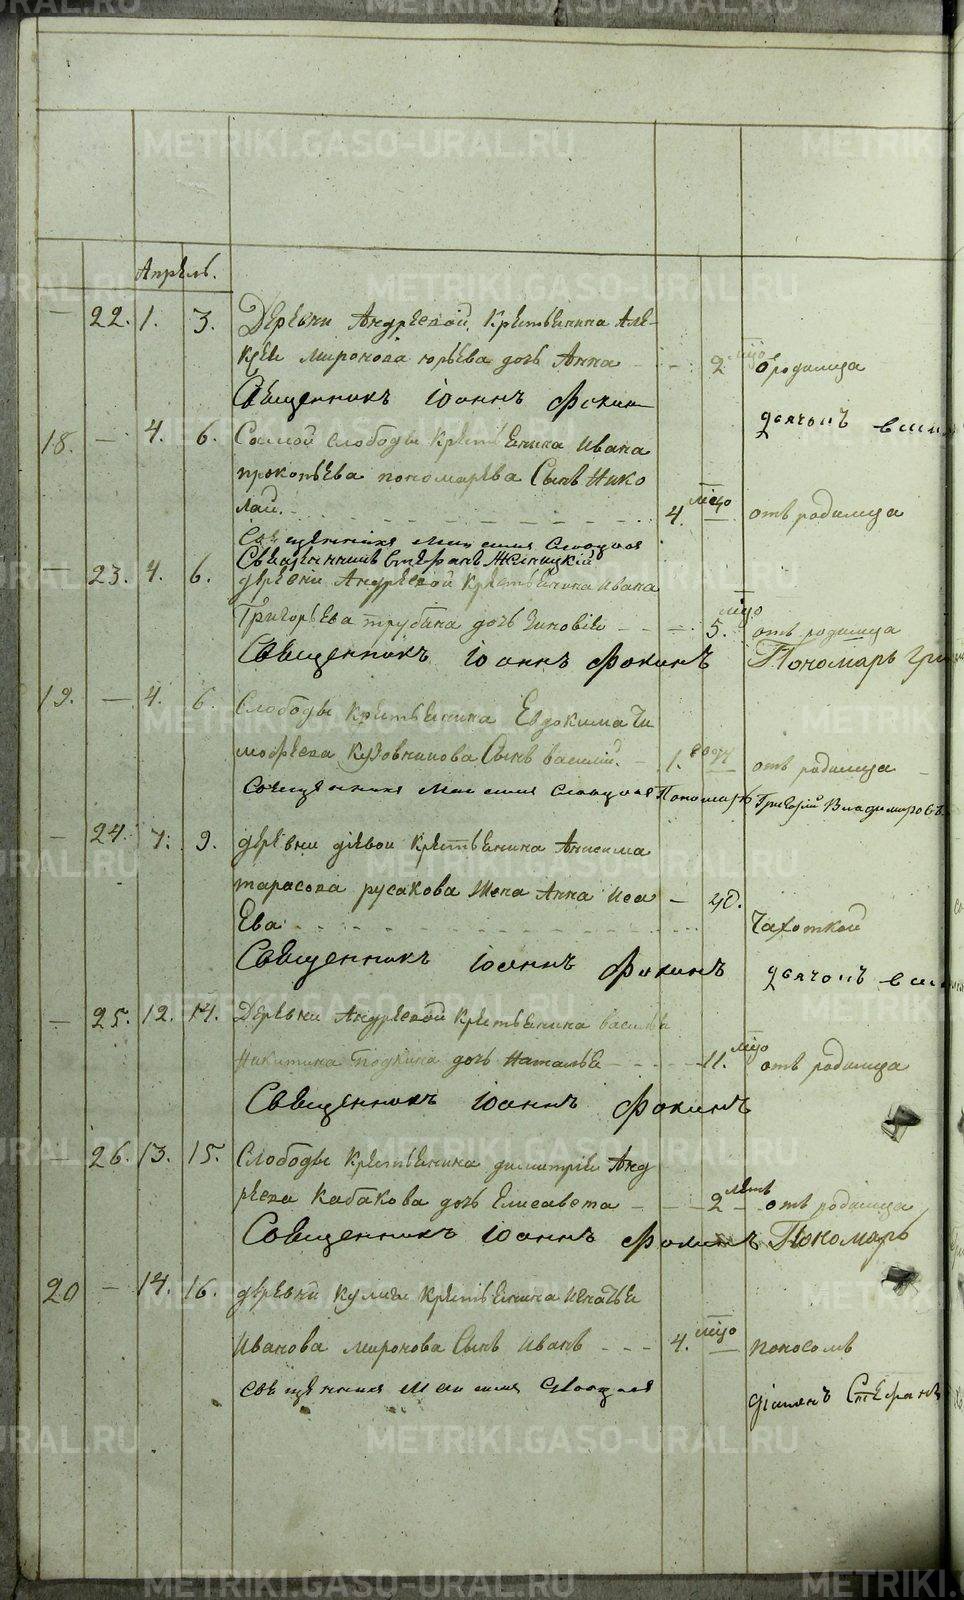 Апрель.
— 22. 1. 3. Деревни Андреевой Крестьянина Але-
ксея Миронова юрьева дочь Анна — — 2 мцо Ѿродимца
Священникъ Іоаннъ Фокинъ
дьячокъ
18. — 4. 6. Самой слободы Крестьянина Ивана
прокопьева пономарева Сынъ Нико
лай. 4. мцо отъ родимца
Священникъ Стефанъ
— 23. 4. 6. деревни Андреевой Крестьянина Ивана
Григорьева трубина дочь Зиновія — — 5. мцо отъ родимца
Священникъ Іоаннъ Фокинъ Пономарь
19. — 4. 6. Слободы Крестьянина Евдокима Ти
мофеева Кузовникова Сынъ василій. — 1. году отъ родимца
Пономарь Григорій Владимировъ
— 24. 7. 9. деревни Крестьянина Анисима
тарасова русакова Жена Анна Иса — 40.
Ева Чахоткой
Священникъ Іоаннъ Фокинъ дьячокъ
— 25. 12. 14. Деревни Андреевой Крестьянина василья
Никитина дочь Наталья — 11. мцо отъ родимца
Священникъ Іоаннъ Фокинъ
— 26. 13. 15. Слободы Крестьянина димитрія Анд
реева Кабакова дочь Елисавета — — 2 летъ отъ родимца
Священникъ Іоаннъ Фокинъ Пономарь
20 — 14. 16. деревни Кулиги Крестьянина Игнатья
Иванова миронова Сынъ Иванъ — 4. мцо поносомъ
діаконъ Стефанъ
METRIKI.GASO-URAL.RU